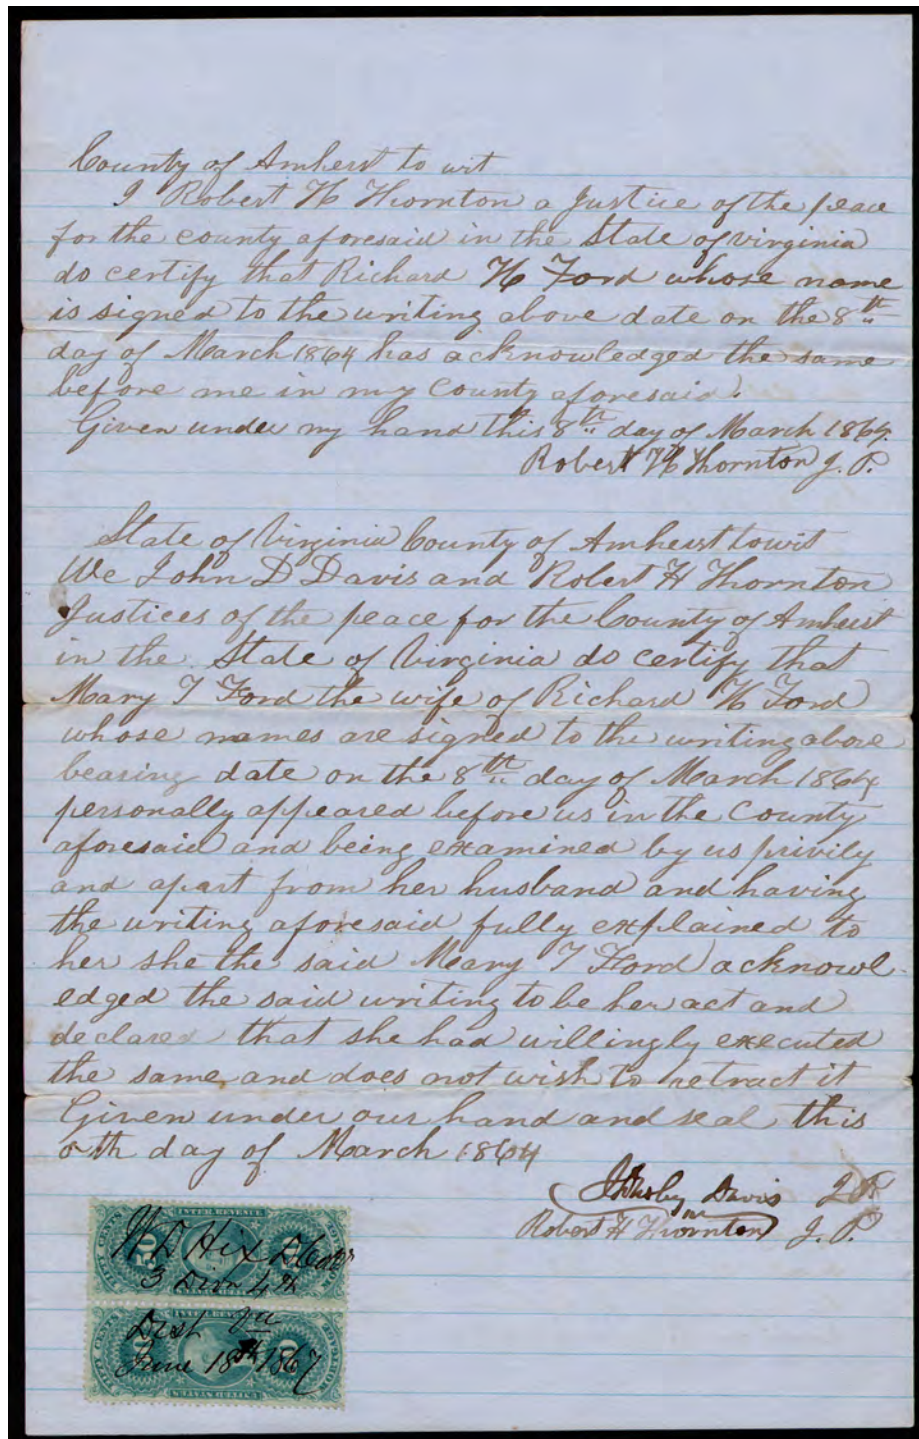 County of Amherst to wit
I Robert H Thornton a Justice of the peace
for the county aforesaid in the State of virginia
do certify that Richard H Ford whose name
is signed to the writing above date on the 8th
day of March 1864 has acknowledged the same
before me in my county aforesaid.
Given under my hand this 8th day of March 1864.
Robert H Thornton J. P.
State of Virginia County of Amherst towit
We John D Davis and Robert H Thornton
Justices of the peace for the County of Amherst
in the State of Virginia do certify that
Mary T Ford the wife of Richard H Ford
whose names are signed to the writing above
bearing date on the 8th day of March 1864
personally appeared before us in the County
aforesaid and being examined by us privily
and apart from her husband and having
the writing aforesaid fully explained to
her she the said Mary T Ford acknowl
edged the said writing to be her act and
declared that she had willingly executed
the same and does not wish to retract it
Given under our hand and seal this
8th day of March 1864
Davis
Robert H Thornton J. P.
INTER. REVENUE
FIFTY CENTS
W D Hix
3 Divn 4th
INTER. REVENUE
FIFTY CENTS
Dist Va
June 18th 1867
UNITED STATES